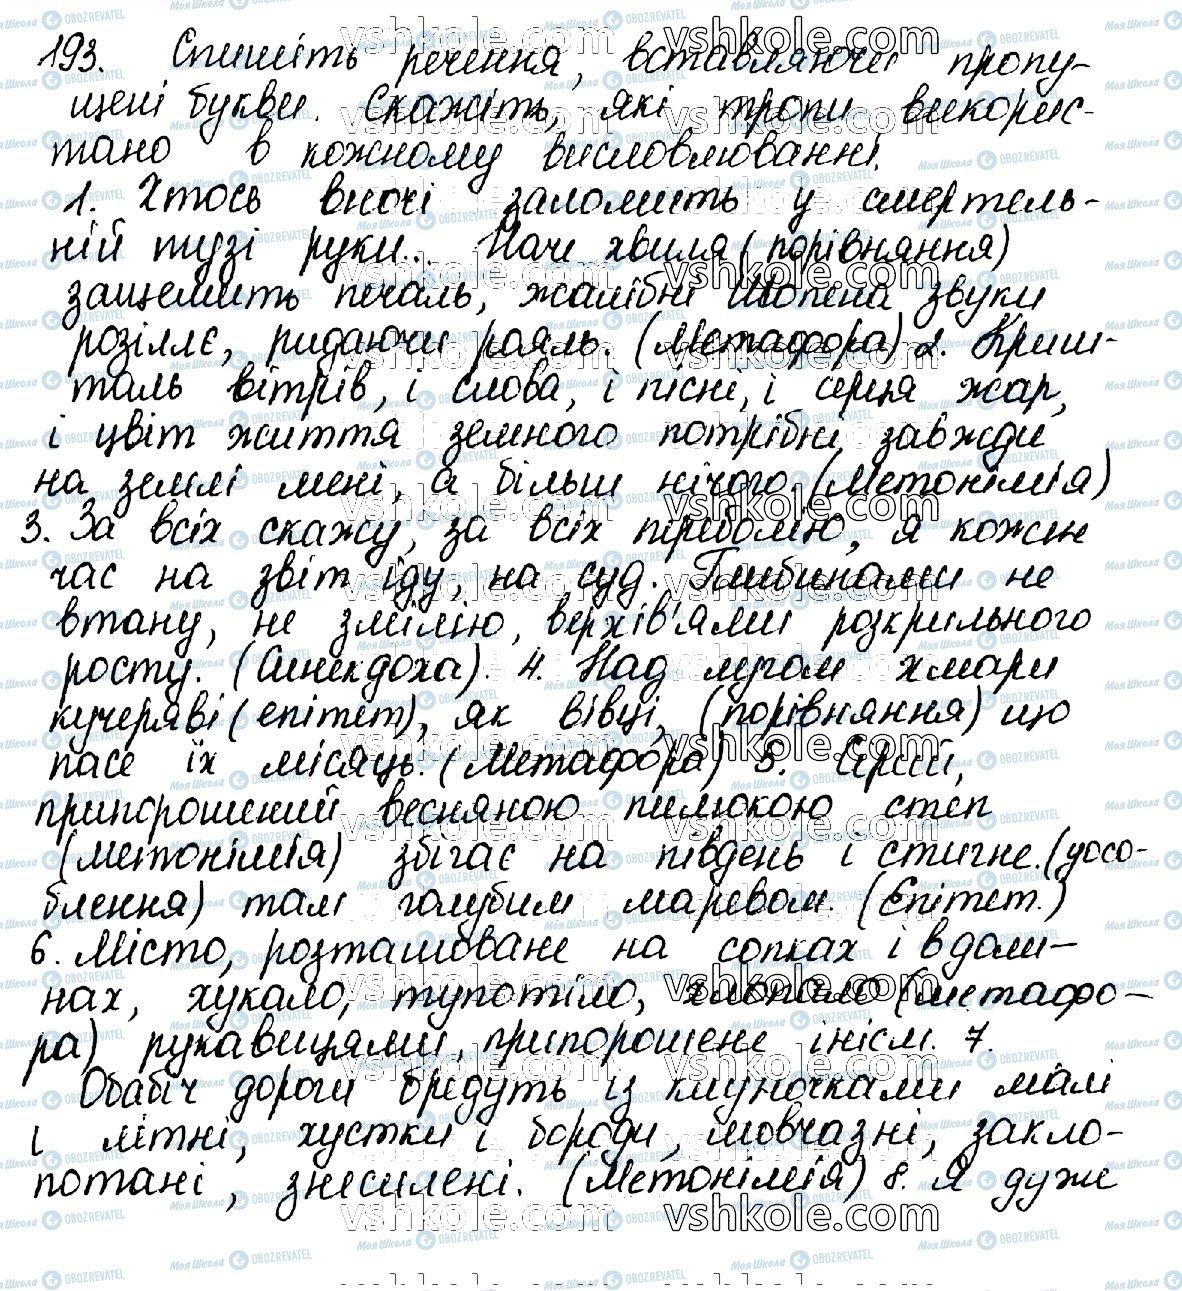 193. Спишіть речення, вставляючи пропу-
щені букви. Скажіть, які тропи викорис-
тано в кожному висловлюванні.
1. Хтось вночі заломить у смертель-
ній тузі руки... Наче хвиля (порівняння)
защемить печаль, жалібні Шопена звуки
розіллє, ридаючи рояль. (Метафора) 2. Криш-
таль вітрів, і слова, і пісні, і серця жар,
і цвіт життя земного потрібні завжди
на землі мені, а більш нічого. (Метонімія)
3. За всіх скажу, за всіх переболію, я кожен
час на звіт іду, на суд. Глибинами не
втану, не змілію, верхів'ями розкрильного
росту. (Синекдоха). 4. Над лугом хмари
кучеряві (епітет), як вівці, (порівняння) що
пасе їх місяць. (Метафора) 5. Сірий,
припорошений весняною пилюкою степ
(метонімія) збігає на південь і стигне. (уосо-
блення) там голубим маревом. (Епітет.)
6. Місто, розташоване на сопках і в доли-
нах, хукало, тупотіло, хлопало (метафо-
ра) рукавицями, припорошене інієм. 7.
Обабіч дороги бредуть із клуночками малі
і літні, хустки і бороди, мовчазні, закло-
потані, знесилені. (Метонімія) 8. Я дуже